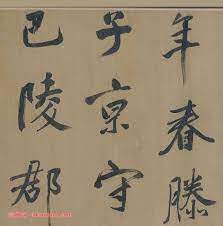 年春滕
子京守
巴陵郡